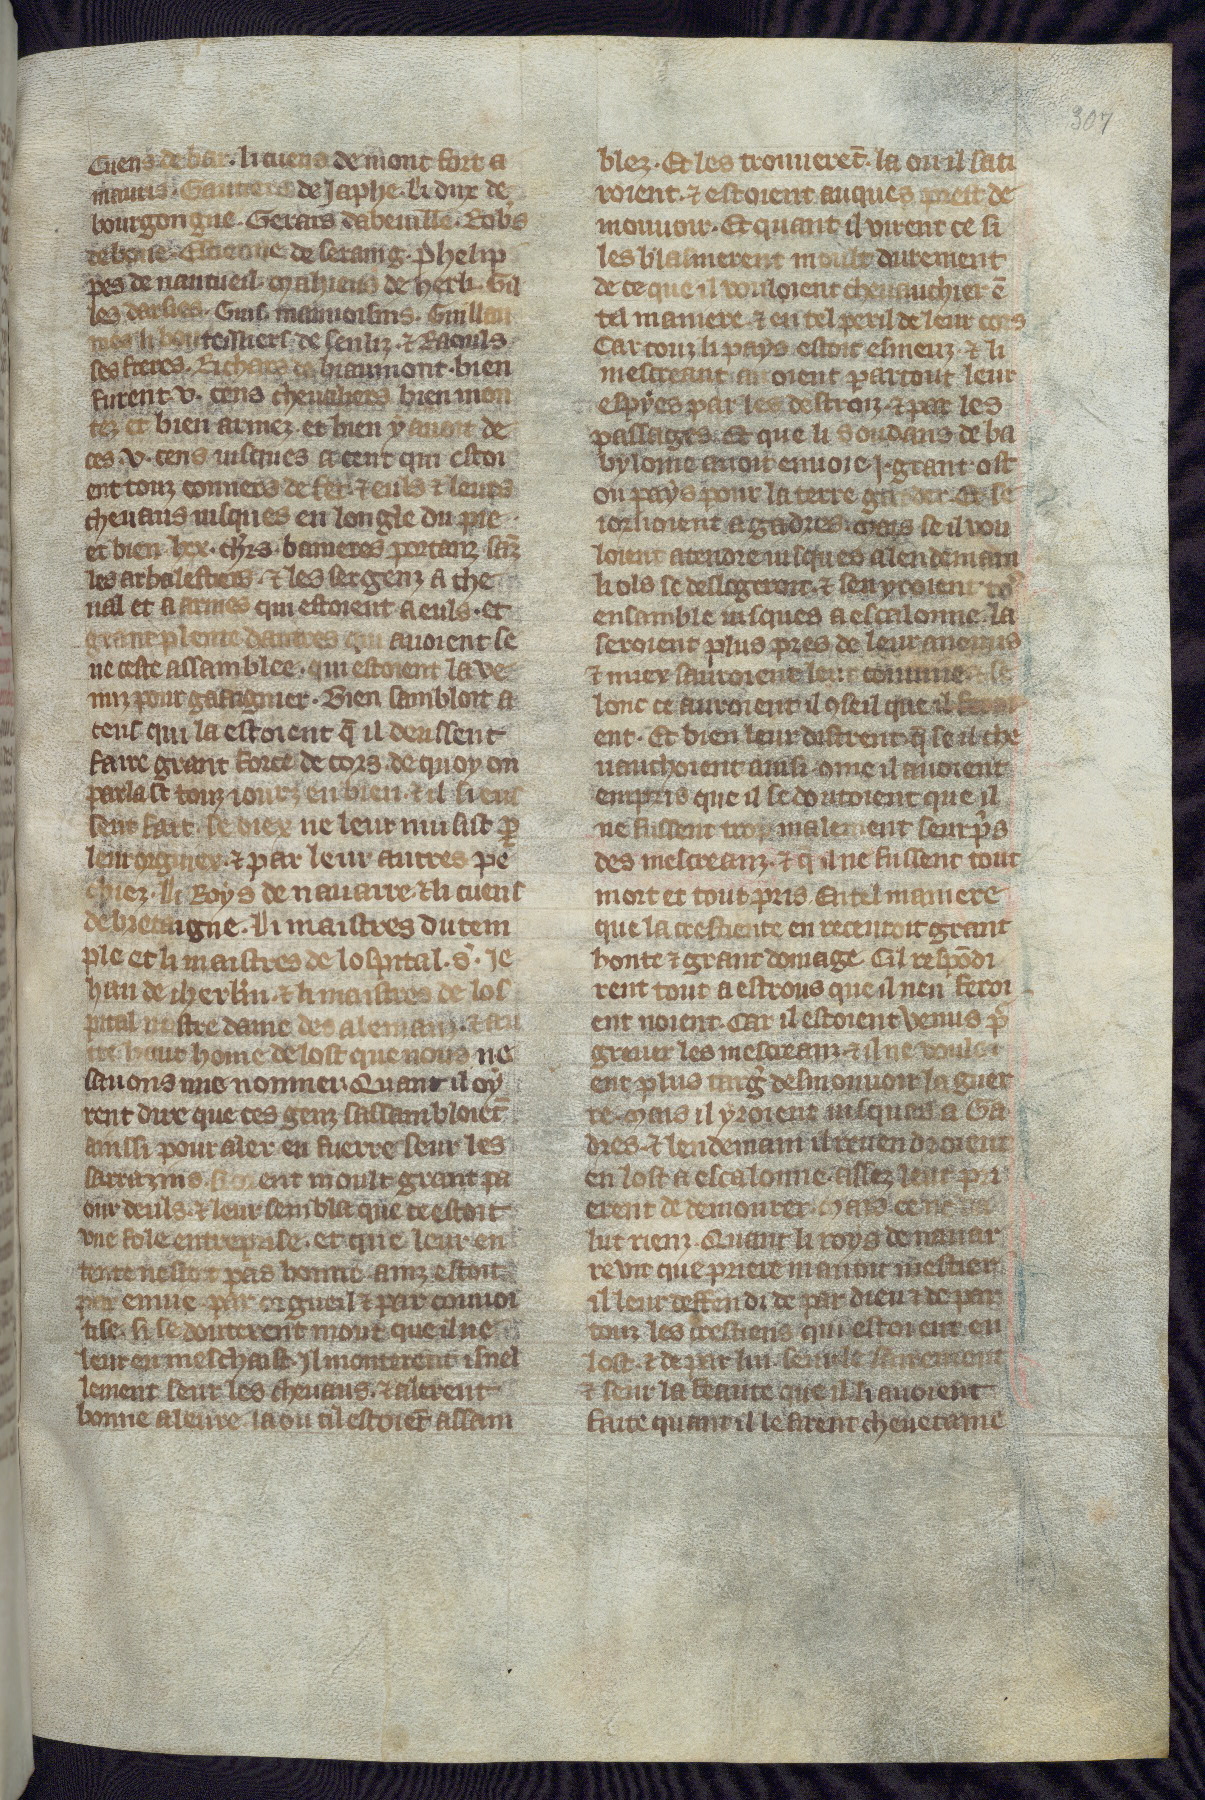 307
Cuens de bar. li cuens de mont fort a
mauris. Gautiers de Japhe. Li dux de
bourgongne. Gerars dabeuille. Robs
de boue. Estienne de seranig. Phelip
pes de nantueil. Mahieus de Gil
les darsies. Guis mauuoisins. Guillau
mes li bouteilliers de senliz. & Raouls
ses freres. Richars de biaumont. bien
furent .v. cens cheualiers bien mon
tez et bien armez. et bien y auoit de
ces .v. cens iusques a cent qui estoi
ent touz couuers de fer. & euls & leurs
cheuaus iusques en longle du pie.
et bien lxx. chrs. banieres portanz sanz
les arbalestiers. & les sergenz a che
ual et a armes qui estoient a euls. et
grant plente dautres qui auoient se
ue ceste assamblee. qui estoient la ve
nuz pour gaaignier. Bien sambloit a
ceus qui la estoient q̄ il deussent
faire grant force de cors de quoy on
parlast touz iourz en bien. & il si eus
sent fait. se diex ne leur nuisist por
leur orgueix. & par leur autres pe
chiez. Li Roys de nauarre. & li cuens
de bretaigne. Li maistres du tem
ple et li maistres de lospital. s'. Je
han de & li maistres de los
pital nostre dame des alemanz. & au
tre haut home de lost que nous ne
sauons mie nonmer. Quant il oy
rent dire que ces genz sassambloiēt
ainssi pour aler en fuerre seur les
sarrazins. si orent moult grant pa
our deuls. & leur sembla que ce estoit
vne fole entreprise. et que leur en
tente nestoit pas bonne. ainz estoit
par enuie. par orgueil & par couuoi
tise. si se douterent mout que il ne
leur en meschaist. Il monterent isnel
lement seur les cheuaus. & alerent
bonne aleure la ou cil estoiēt assam
blez. Et les trouuerēt la ou il sati
roient. & estoient auques prest de
mouuoir. Et quant il virent ce si
les blasmerent moult durement
de ce que il vouloient cheuauchier ē
tel maniere & en tel peril de leur cors
Car touz li pays estoit esmeuz. & li
mescreant auoient partout leur
espyes par les destroiz. & par les
passages. Et que li Soudans de ba
byloine auoit enuoie .j. grant ost
ou pays pour la terre garder. Et se
iornoient a gadres. Mais se il vou
loient atendre iusques a lendemain
li ols se deslogeroit. & sen yroient to'
ensamble iusques a escalonne. la
seroient plus pres de leur anemis
& miex sauroient leur couuine. & se
lonc ce auroient il 9seil que il feroi
ent. Et bien leur distrent q̄ se il che
uauchoient ainsi 9me il auoient
empris que il se doutoient que il
ne fussent trop malement seurpris
des mescreanz. & q̄ il ne fussent tout
mort et tout pris. En tel maniere
que la crestiente en receuroit grant
honte & grant domage. Cil respōdi
rent tout a estrous que il nen feroi
ent noient. Car il estoient venus pour
greuer les mescreanz. & il ne vouloi
ent plus targ' desmouuoir la guer
re. Mais il yroient iusques a Ga
dres. & lendemain il reuendroient
en lost a escalonne. assez leur pri
erent de demourer. Mais ce ne va
lut rienz. Quant li roys de nauar
re vit que priere ni auoit mestier
il leur deffendi de par dieu & de par
touz les crestiens qui estoient en
lost. & de par lui. seur le sairement
& seur la feaute que il li auoient
faite quant il le firent cheuetaine